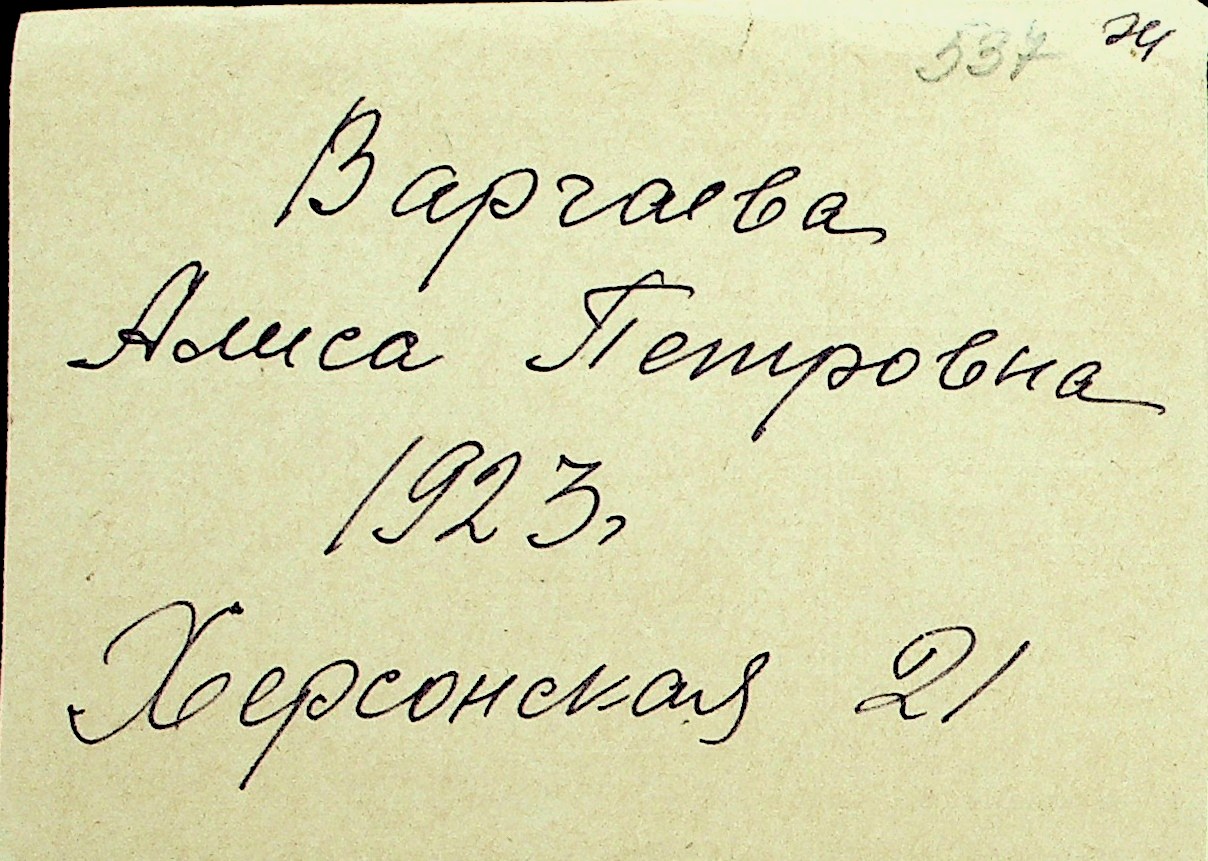 537
Варгаева
Алиса Петровна
1923г
Херсонская 21